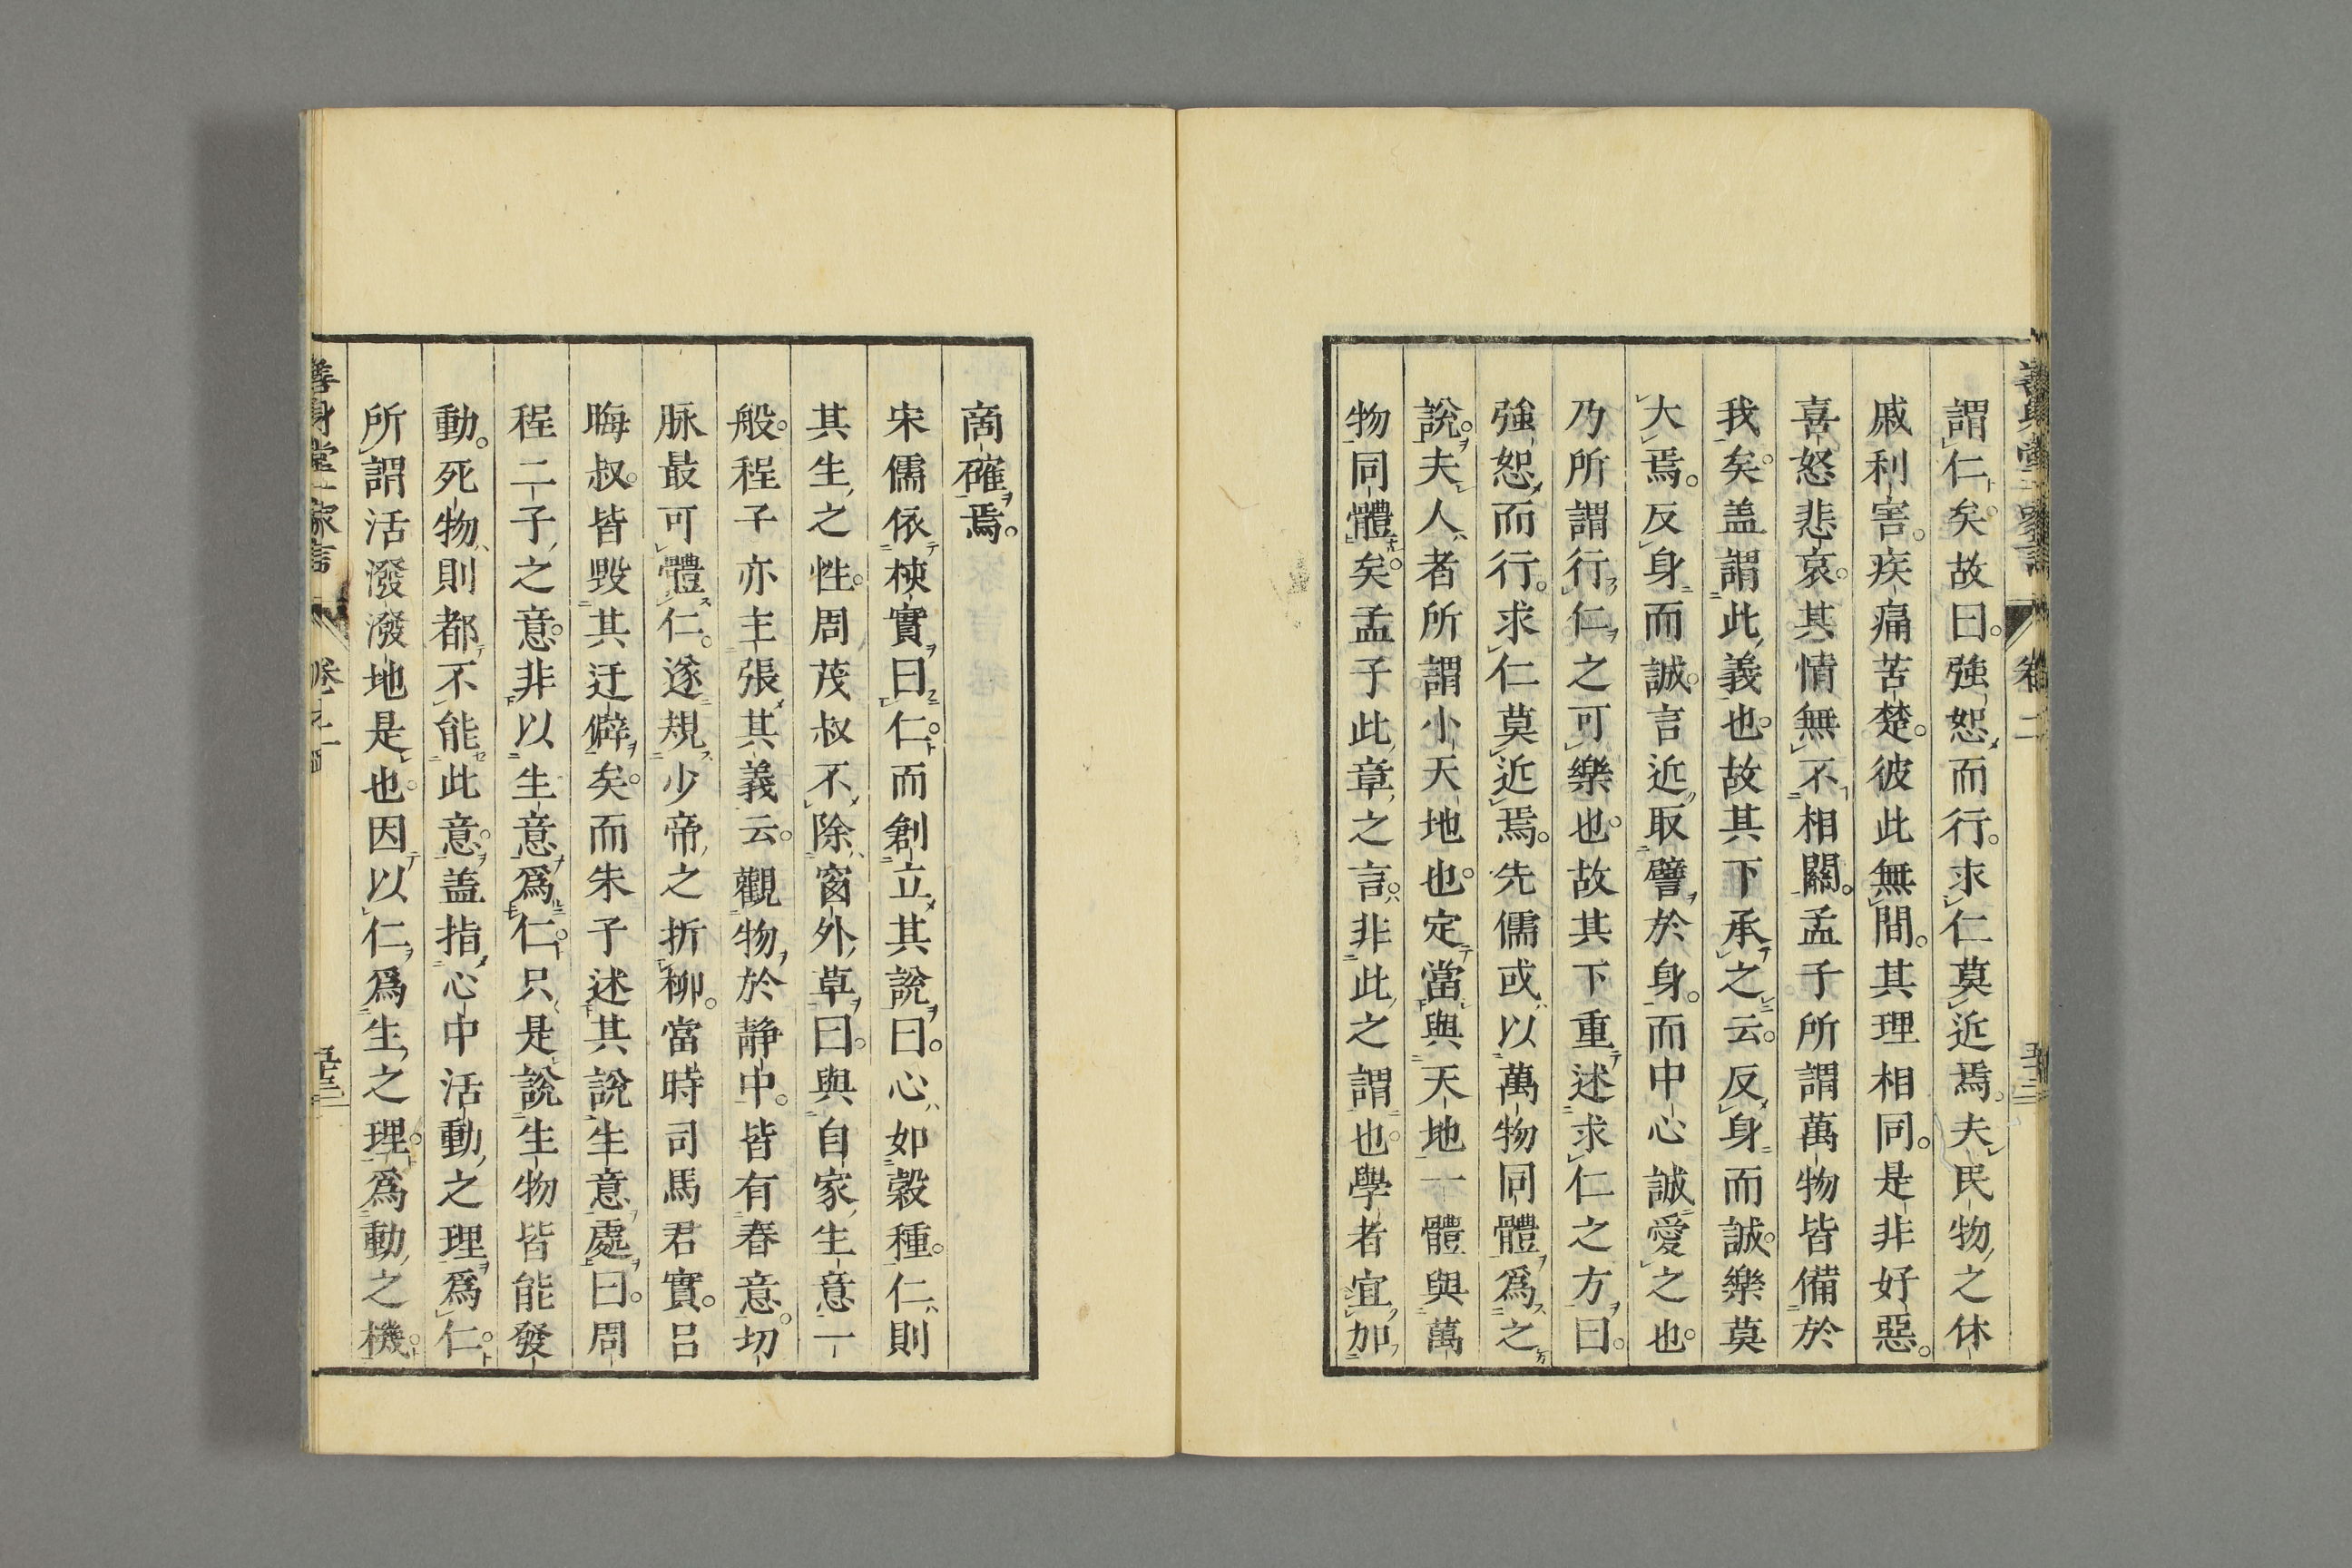 謂仁矣。故曰。強恕而行。求仁莫近焉。夫民物之休
戚利害。疾痛苦楚。彼此無間。其理相同。是非好惡。
喜怒悲哀。其情無不相關。孟子所謂萬物皆備於
我矣。盖謂此義也。故其下承之云。反身而誠。樂莫
大焉。反身而誠。言近取譬於身。而中心誠愛之也。
乃所謂行仁之可樂也。故其下重述求仁之方曰。
強恕而行。求仁莫近焉。先儒或以萬物同體爲之
說。夫人者所謂小天地也。定當與天地一體與萬
物同體矣。孟子此章之言。非此之謂也。學者宜加
啇確焉。
宋儒依𣐈實曰仁。而創立其說曰。心如穀種。仁則
其生之性。周茂叔不除窗外草曰。與自家生意一
般。程子亦主張其義云。觀物於静中。皆有春意。切
脉最可體仁。遂規少帝之折柳。當時司馬君實。呂
晦叔。皆毀其迂僻矣。而朱子述其說生意處曰。周
程二子之意。非以生意爲仁。只是說生物皆能發
動。死物則都不能此意。盖指心中活動之理爲仁。
所謂活潑潑地是也。因以仁爲生之理。爲動之機。
善身堂一家言 卷之二 五十三